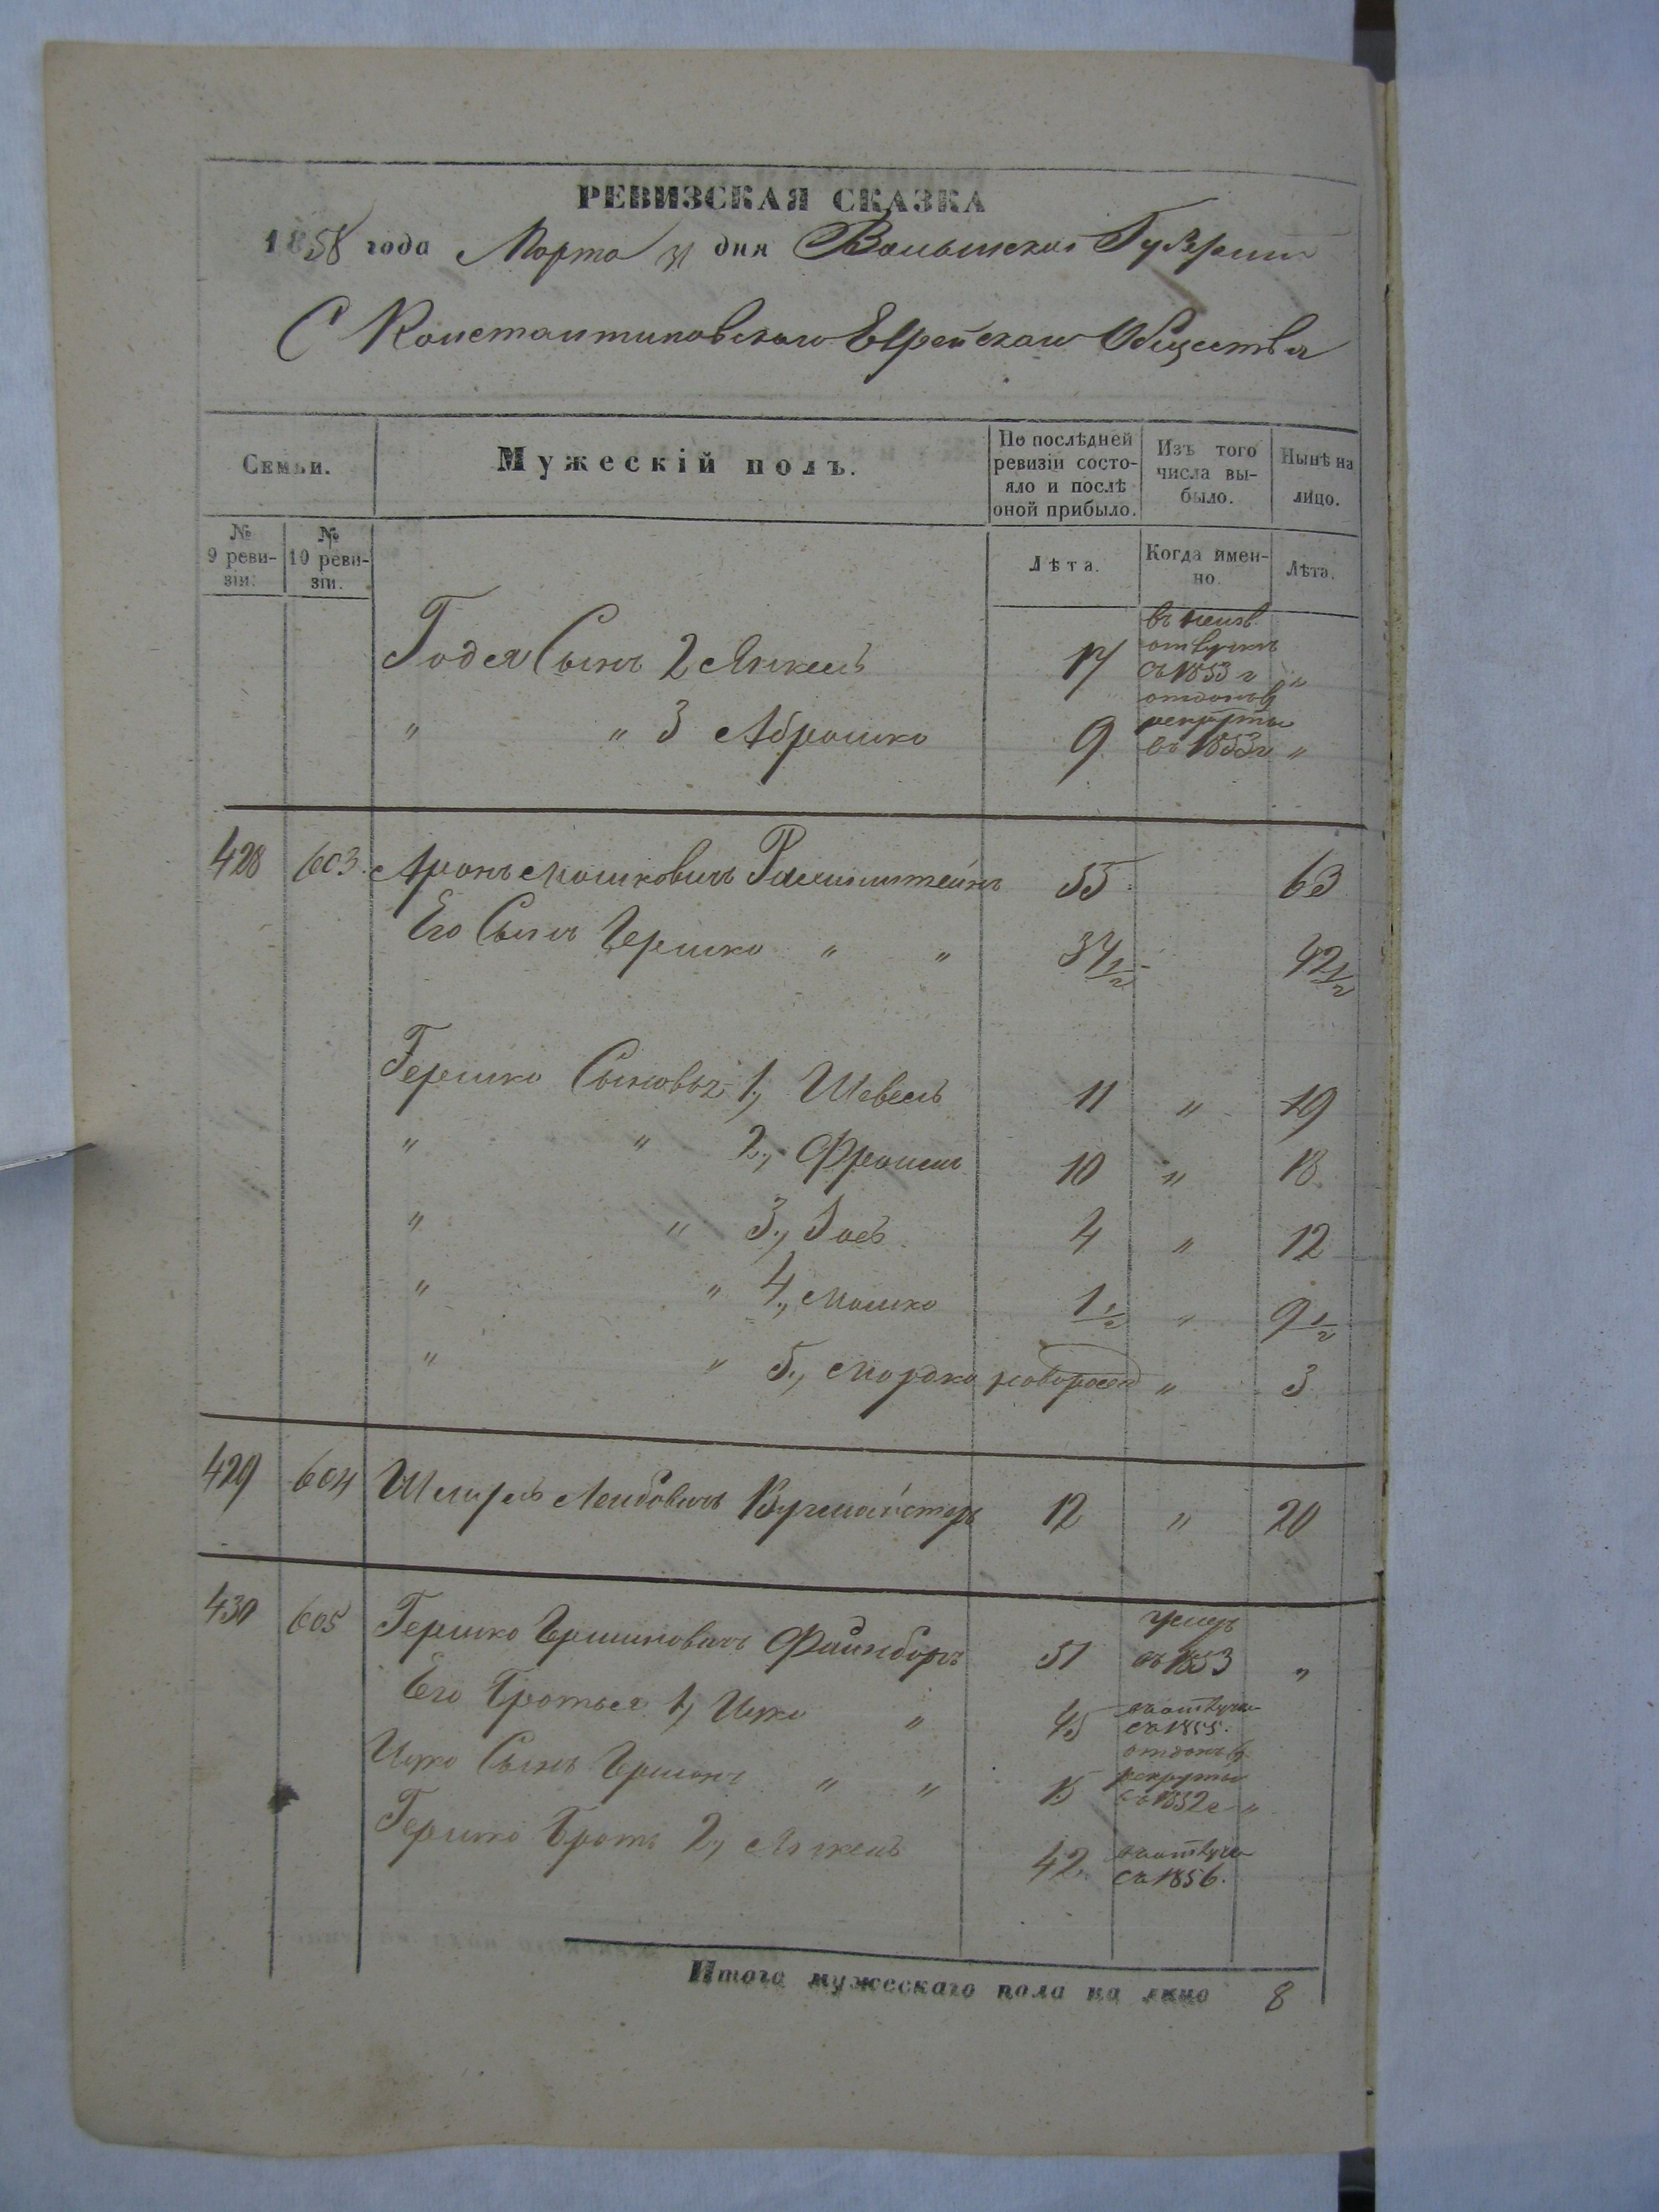 РЕВИЗСКАЯ СКАЗКА
1858 года Марта 31 дня Волынской Губерніи
С Константиновскаго Еврейскаго Общества
Семьи.
Мужескій полъ.
По послѣдней ревизіи состо-яло и послѣ оной прибыло.
Изъ того числа вы-было.
Нынѣ на лицо.
№ 9 реви-зіи.
№ 10 реви-зіи.
Лѣта.
Когда имен-но.
Лѣта.
Годея Сынъ 2 Янкель 17 въ неизв отлучкѣ съ 1853 г "
" " 3 Абрашко 9 отданъ в рекруты въ 1853 г "
428 603. Аронъ Мошковичъ 55 63
Его Сынъ Гершко " " 34 1/2 42 1/2
Гершко Сыновья 1, Шевель 11 " 19
" " 2, Фроимъ 10 " 18
" " 3, 4 " 12
" " 4, Мошко 1 1/2 " 9 1/2
" " 5, Мордко новорожд " 3
429 604 Шмирель Лейбовичъ 12 " 20
430 605 Гершко Ершковичъ Файнборъ 51 умеръ въ 1853 "
Его Братья 1, Ицко " 45 въ отлучке съ 1855.
Ицко Сынъ " " 15 отданъ в рекруты въ 1852 г "
Гершко Братъ 2, Янкель 42. въ отлучке съ 1856.
Итого мужескаго пола на лицо 8